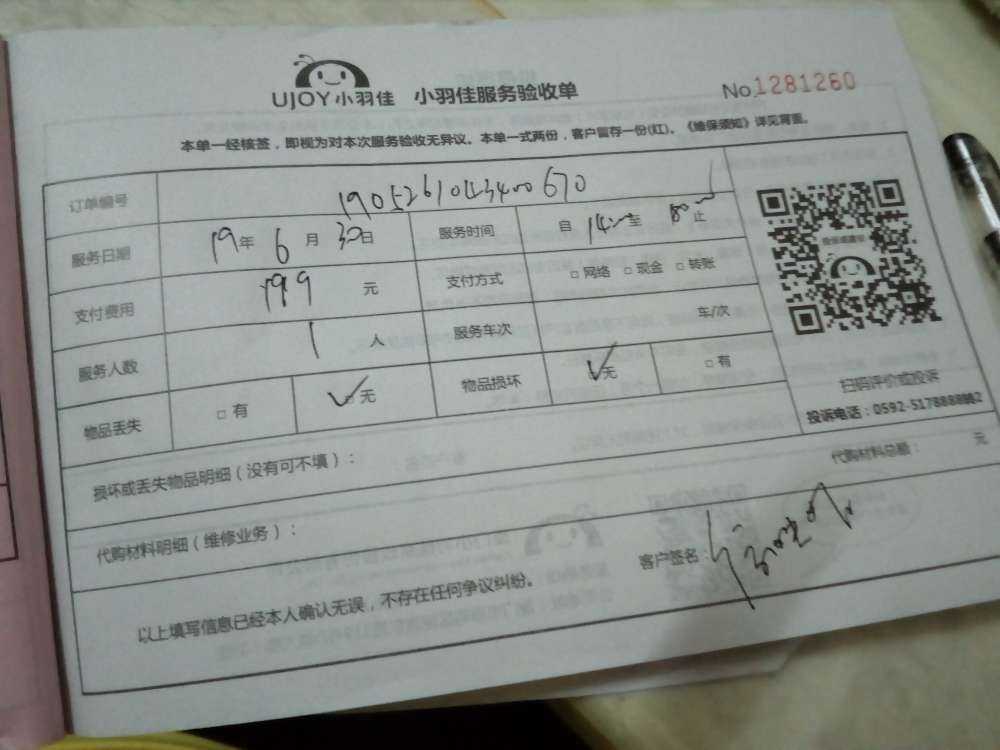 UJOY小羽佳 小羽佳服务验收单 No 1281260
本单一经核签，即视为对本次服务验收无异议。本单一式两份，客户留存一份(红)。《维保须知》详见背面。
订单编号
服务日期 19年 6月 30日 服务时间 自 14 至 止
支付费用 199 元 支付方式 □网络 □现金 □转账
服务人数 1 人 服务车次 车/次
物品丢失 □有 ✓无 物品损坏 ✓无 □有
扫码评价或投诉
损坏或丢失物品明细（没有可不填）：
代购材料明细（维修业务）： 代购材料总额： 元
客户签名：
以上填写信息已经本人确认无误，不存在任何争议纠纷。